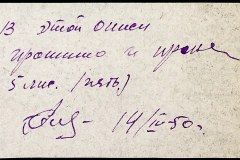 В этой описи
прошито и прону
5 лис. (пять)
14/IV-50г.